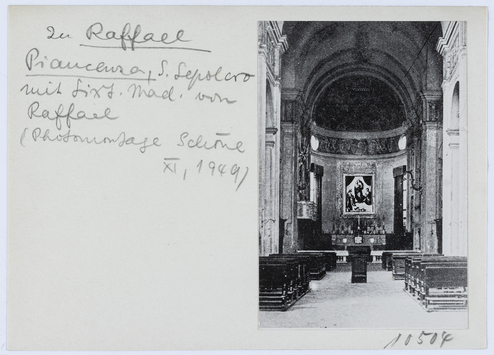 Zu Raffael
Piancenza, S. Sepolcro
mit Sixt. Mad. von
Raffael
(Photomontage Schöne
XI, 1949)
10504